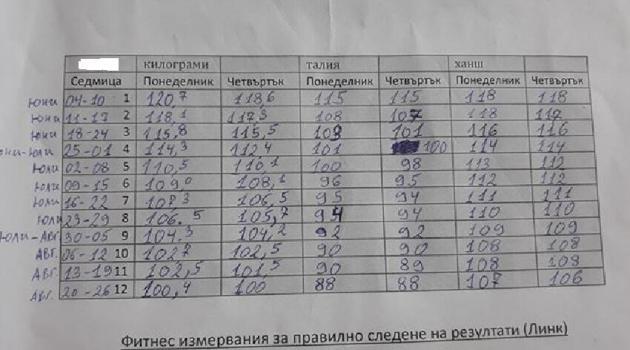 килограми талия ханш
Седмица Понеделник Четвъртък Понеделник Четвъртък Понеделник Четвъртък
юни 04-10 1 120,7 118,6 115 115 118 118
юни 11-17 2 118,1 117,3 108 107 118 117
юни 18-24 3 115,8 115,5 101 116 116
юни-юли 25-01 4 114,3 112,4 101 100 114 114
юли 02-08 5 110,5 110,1 100 98 113 112
юли 09-15 6 109,0 108,1 96 95 112 112
юли 16-22 7 108,3 106,5 95 94 111 111
юли 23-29 8 106.5 105,7 94 94 110 110
юли-авг 30-05 9 104.3 104,2 92 92 109 109
авг. 06-12 10 102,7 102,5 90 90 108 108
авг. 13-19 11 102,5 90 89 108 108
авг. 20-26 12 100,4 100 88 88 107 106
Фитнес измервания за правилно следене на резултати (Линк)